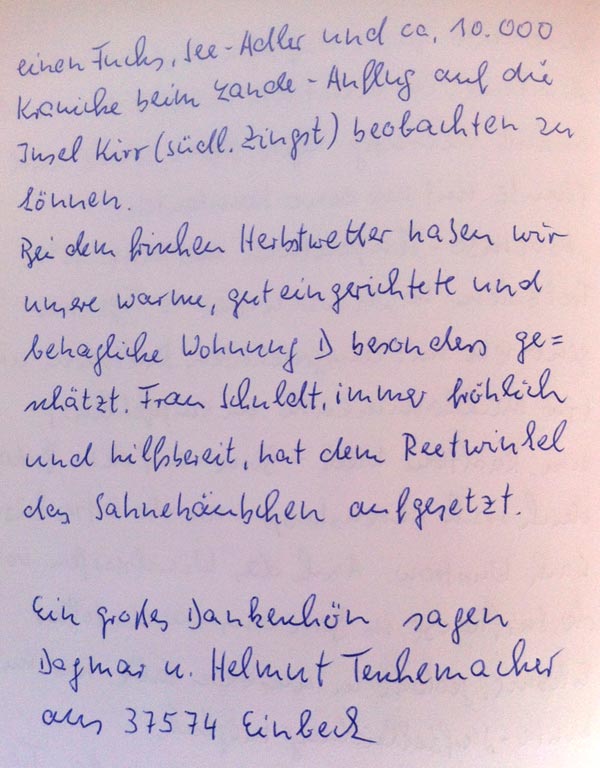 einen Fuchs, See-Adler und ca. 10.000
Kraniche beim Lande-Anflug auf die
Insel Kirr (südl. Zingst) beobachten zu
können.
Bei dem frischen Herbstwetter haben wir
unsere warme, gut eingerichtete und
behagliche Wohnung D besonders ge=
schätzt. Frau Schuldt, immer fröhlich
und hilfsbereit, hat dem Reetwinkel
das Sahnehäubchen aufgesetzt.
Ein großes Dankeschön sagen
Dagmar u. Helmut Teschemacher
aus 37574 Einbeck